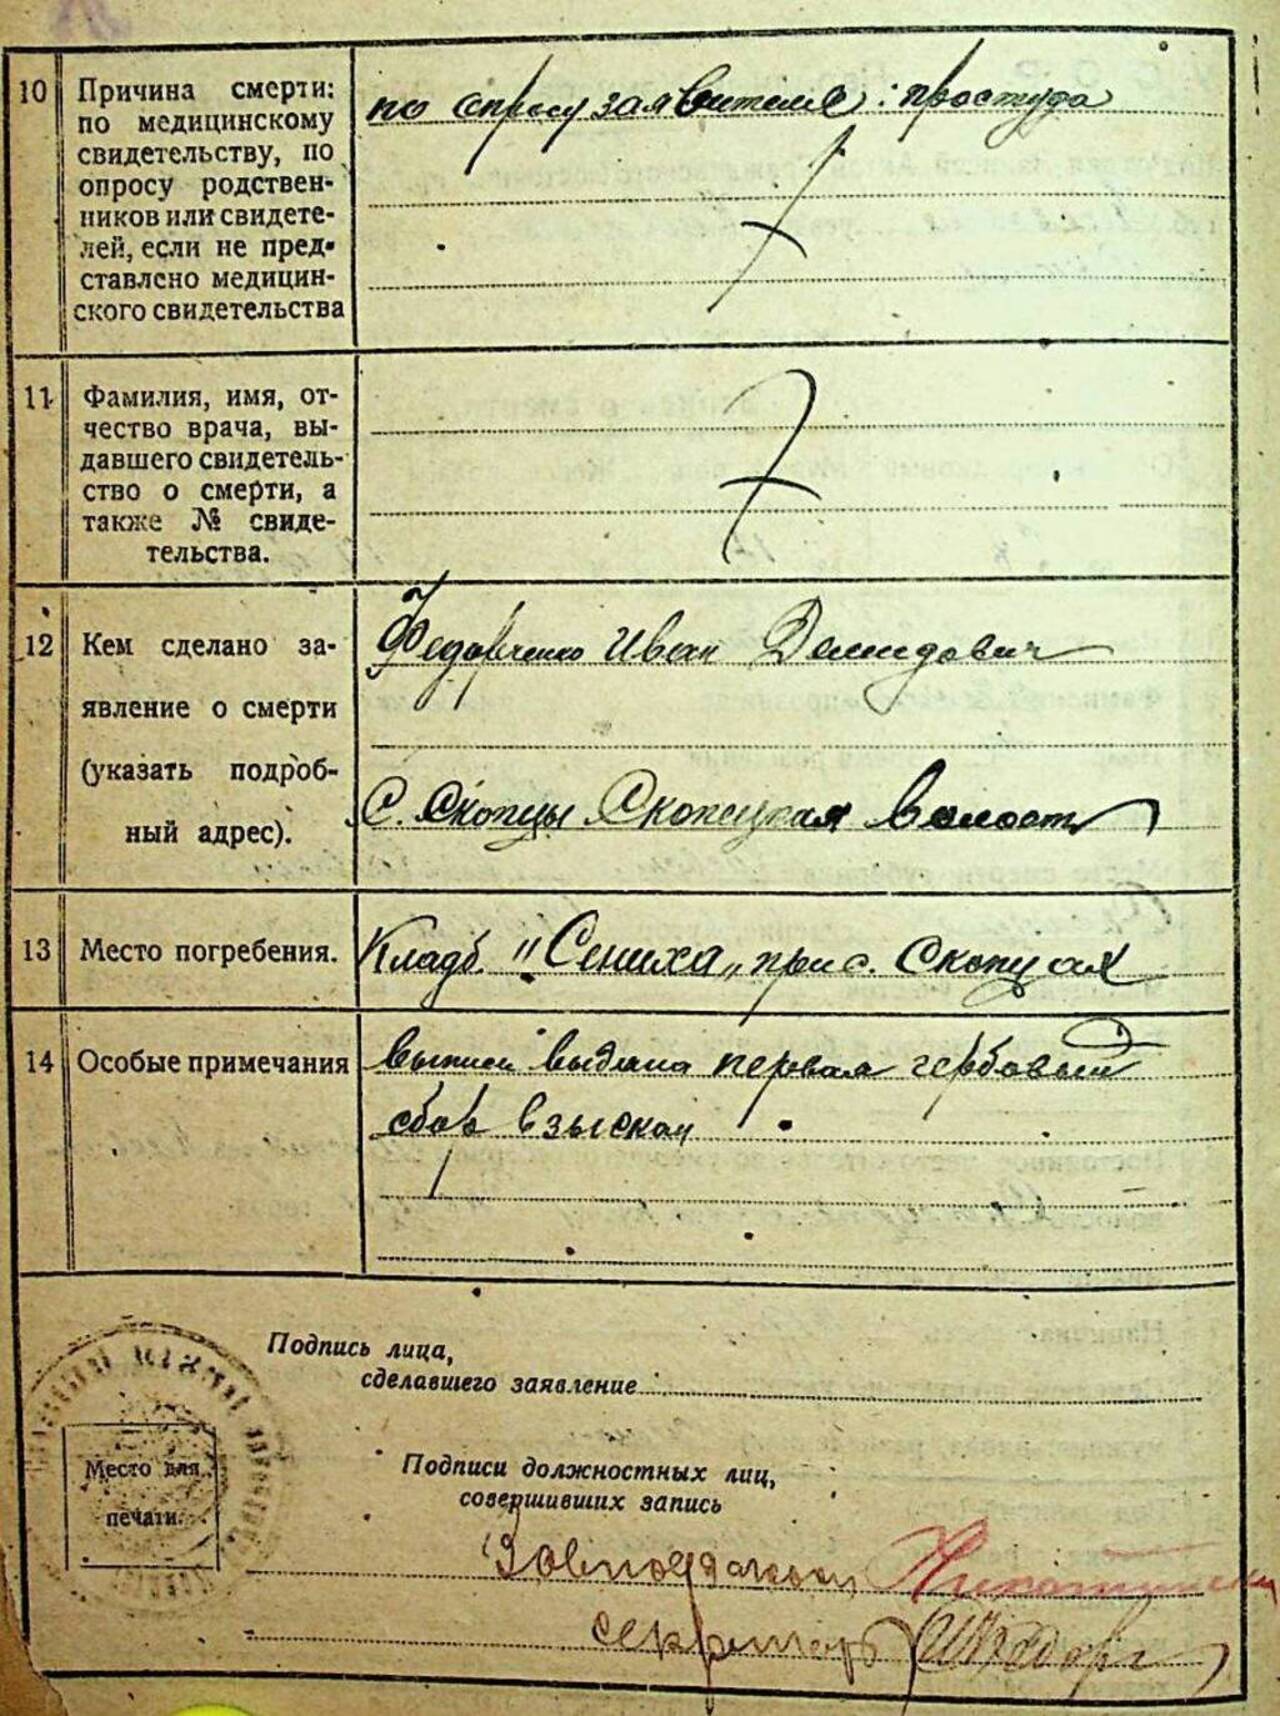 10
Причина смерти:
по медицинскому
свидетельству, по
опросу родствен-
ников или свидете-
лей, если не пред-
ставлено медицин-
ского свидетельства
по спросу заявителя: простуда
11
Фамилия, имя, от-
чество врача, вы-
давшего свидетель-
ство о смерти, а
также № свиде-
тельства.
12
Кем сделано за-
явление о смерти
(указать подроб-
ный адрес).
Федорченко Иван Демидович
С. Скопцы Скопецкая волость
13
Место погребения.
Кладб. "Сениха" при с. Скопцах
14
Особые примечания
выпись выдана первая гербовый
сбор взыскан
Подпись лица,
сделавшего заявление
Подписи должностных лиц,
совершивших запись
Место для
печати.
секретарь